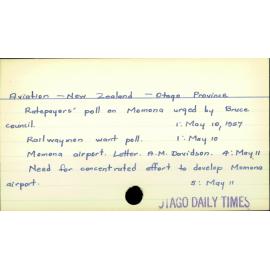 Aviation - New Zealand - Otago Province
Ratepayers' poll on Momona urged by Bruce
council. 1: May 10, 1957
Railwaymen want poll. 1: May 10
Momona airport. Letter. A.M. Davidson. 4: May 11
Need for concentrated effort to develop Momona
airport. 5: May 11
OTAGO DAILY TIMES